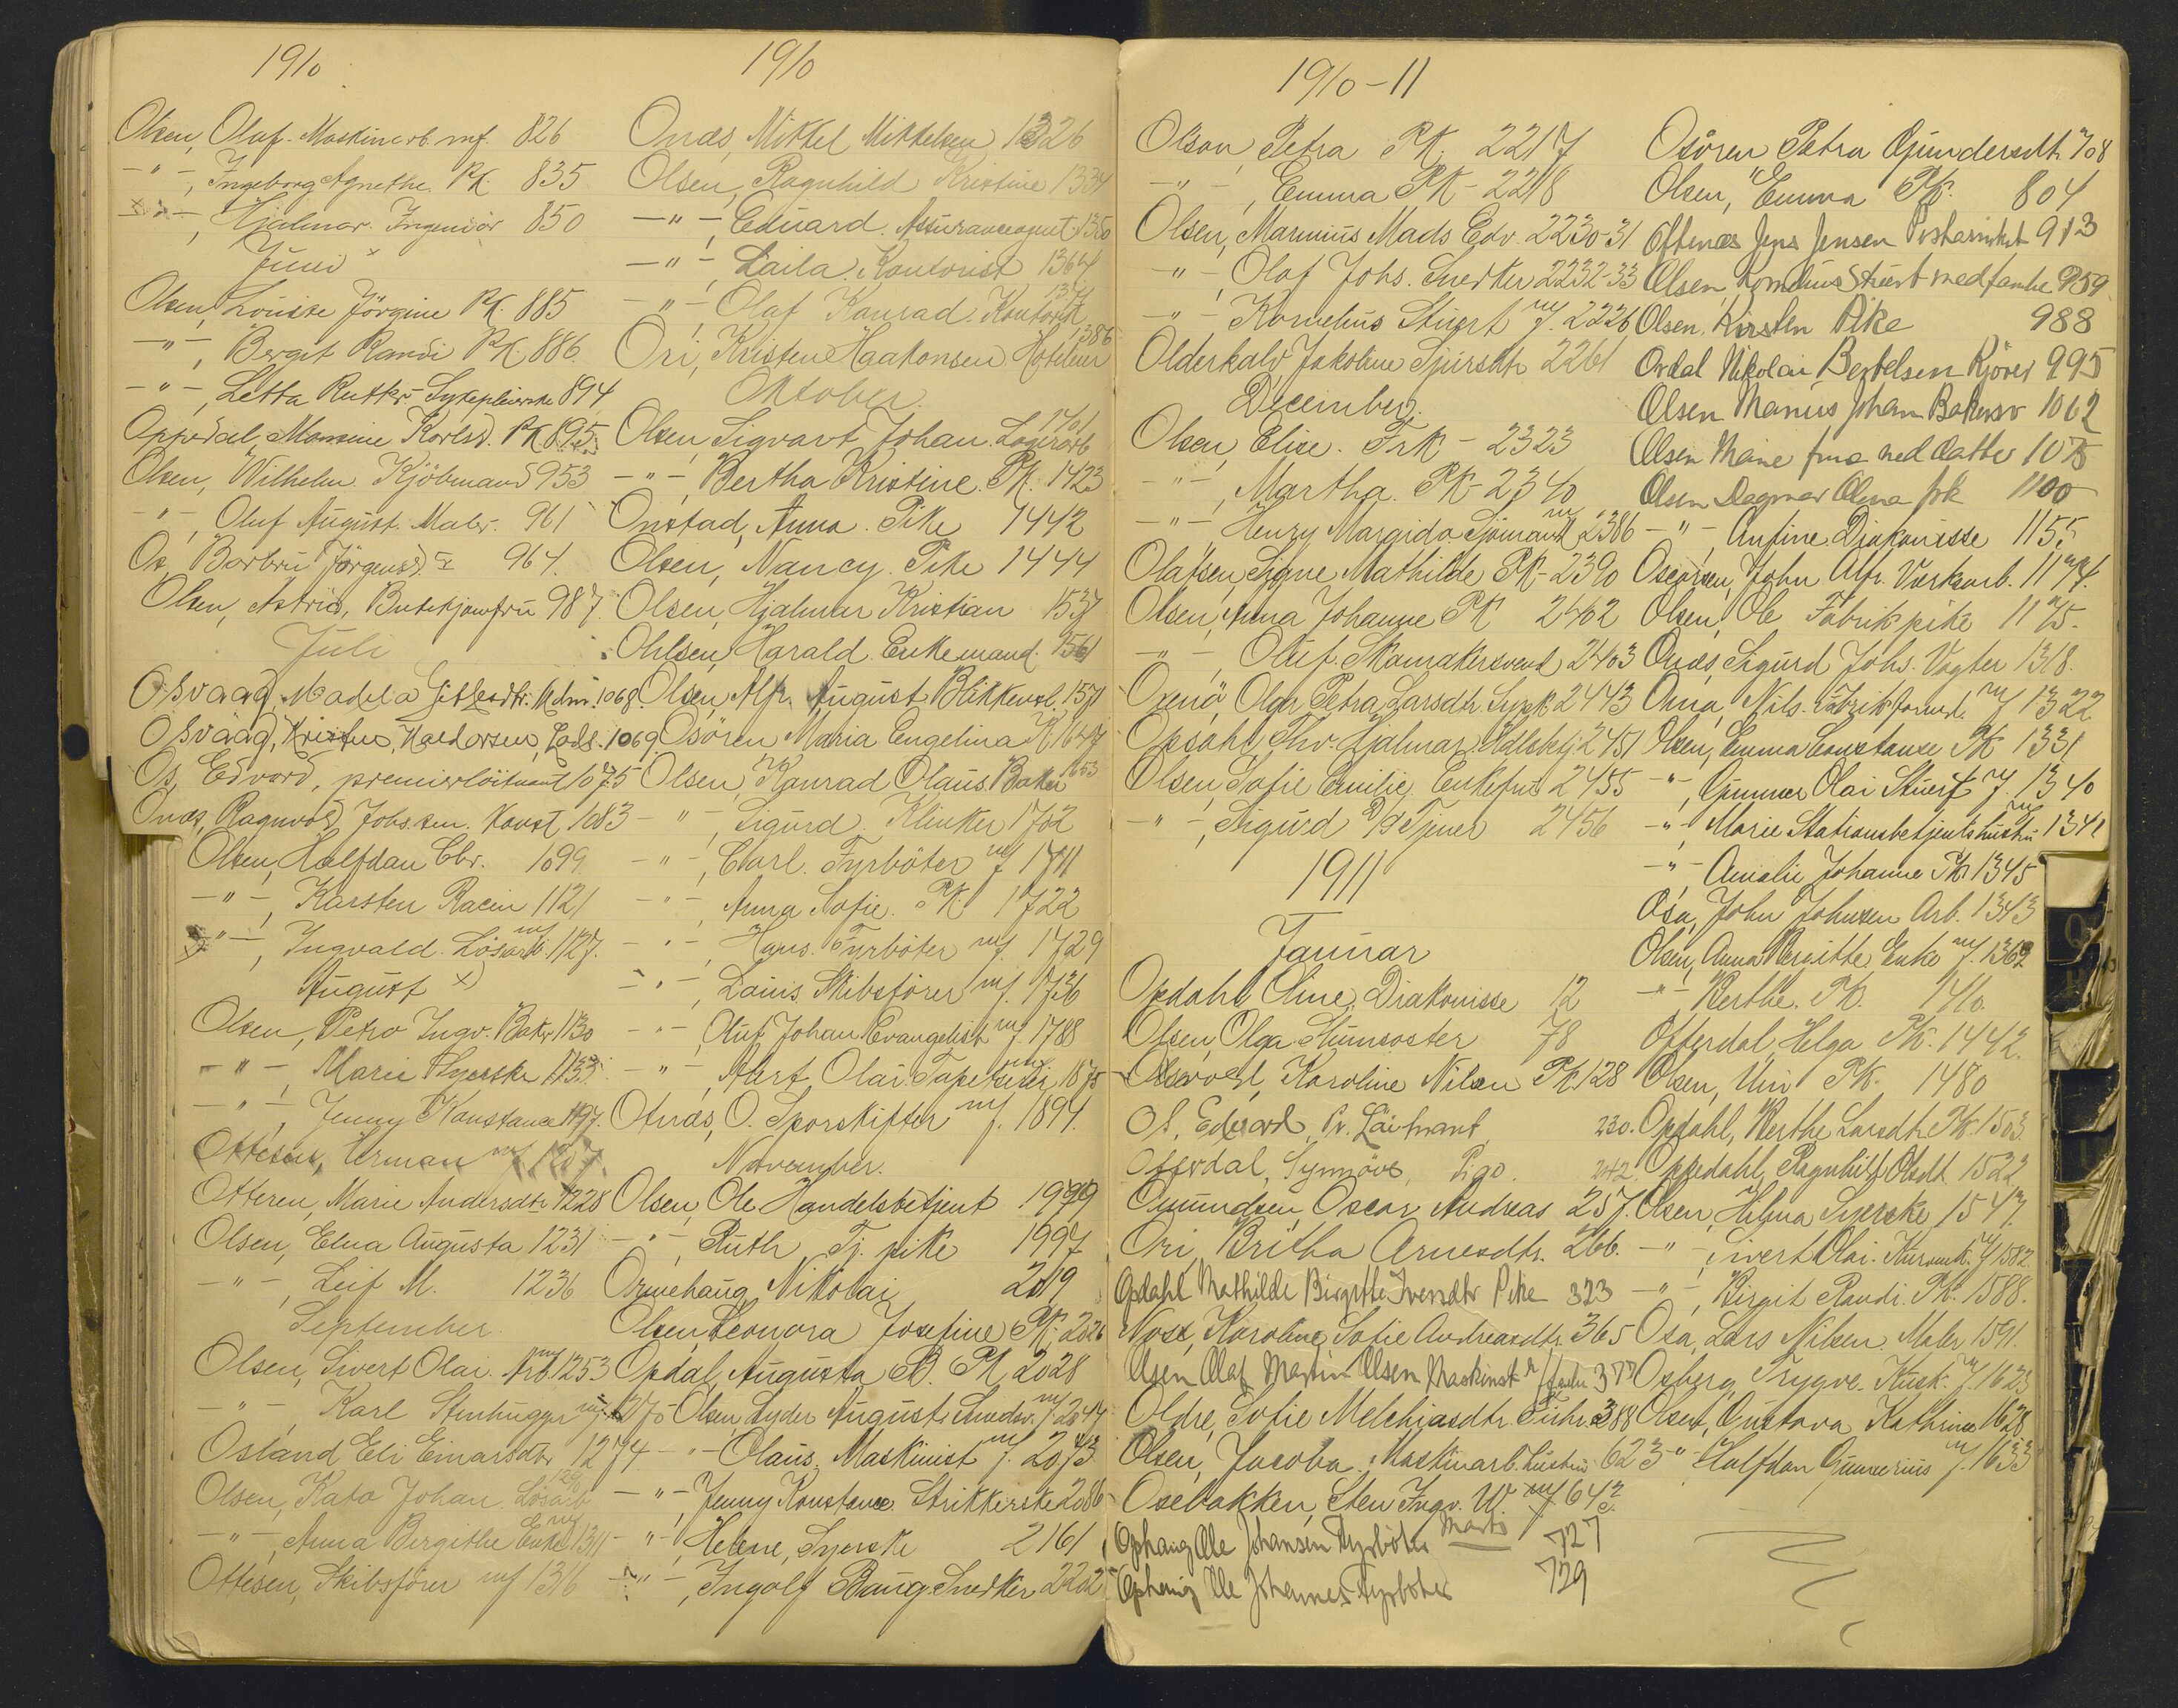 1910
Olsen, Olaf. Maskinarb. mf. 826
-"-, Ingeborg Agnethe. PK 835
-"-, Hjalmar. Ingeniör 850
Juni
Olsen, Louise Jörgine PK. 885
-"-, Bergit Randi PK 886
-"-, Letta Rutker Sykepleierske 894
Oppedal, Monsine Karlsd. PK 895
Olsen, Wilhelm. Kjöbmand 953
-"-, Oluf August. Maler. 961
Os, Barbru Jörgensd. 964.
Olsen, Astrid, Butikjomfru 987.
Juli
Osvaag, Madela Gitlesdtr. 1068.
Osvaag, Kristen Haldorsen, 1069
Os, Edvard, premierlöitnant 1075
Onæs, Ragnvald Johs.sen. Kont 1083
Olsen, Halfdan Cbr. 1099
-"-, Karsten Racin 1121
-"-, Ingvald. Lösarb. mf 1127.
August x)
Olsen, Petro Ingv. Baker 1130
-"-, Marie Syerske 1133
-"-, Jenny Konstance 1197.
Ottesen, Herman mf 1207.
Otteren, Marie Andersdtr 1228
Olsen, Elna Augusta 1231
-"-, Leif M. 1236
September
Olsen, Sivert Olai. Arb. mf 1253
-"-, Karl Stenhugger mf 1270
Osland Eli Einarsdtr 1274
Olsen, Kata Johan. Lösarb 1290
-"-, Anna Bergithe Enke mf 1311
Ottesen, Skibsförer mf 1316
1910
Onæs, Mikkel Mikkelsen 1326
Olsen, Ragnhild Kristine 1334
-"-, Eduard. Assuranceagent 1350
-"-, Laila. Kontorist 1364
-"-, Olaf Konrad. Kontorist
Ori, Kristen Haakonsen. Hoteleier 1386
Oktober.
Olsen, Sigvart Johan. Lagerarb 1401
-"-, Bertha Kristine. PK. 1423
Onstad, Anna. Pike 1442
Olsen, Nancy. Pike 1444
Olsen, Hjalmar Kristian 1537
Ohlsen, Harald. Enkemand. 1561
Olsen, Alfr. August. Blikkensl. 1571
Osören Maria Engelina PK 1647
Olsen, Konrad Olaus. Baker 1653
-"-, Sigurd. Klinker 1702
-"-, Carl. Fyrböter mf 1711
-"-, Anna Sofie. PK. 1722
-"-, Hans. Fyrböter mf. 1729
-"-, Lauis Skibsförer mf. 1736
-"-, Oluf Johan Evangelist mf. 1788
-"-, Albert Olai Tapetserer, mf 1875
Otnæs, O. Sporskifter mf. 1894.
November.
Olsen, Ole Handelsbetjent 1979
-"-, Ruth Tj. pike 1997
Ormehaug Nikolai 2019
Olsen Leonora Josefine PK. 2026
Opdal, Augusta B. PK 2028
Olsen, Lyder August. Smedsv. mf. 2047
-"- Olaus. Maskinist mf. 2073
-"-, Jenny Konstance. Strikkerske 2086
-"-, Helene, Syerske 2161
-"-, Ingolf Baug. Snedker 2202
1910-11
Olsen, Petra PK. 2217
-"-, Emma PK - 2218
Olsen, Marinius Mads Edv. 2230-31
-"-, Olaf Johs. Snedker 2232-33
-"- Kornelius Stuert mf. 2226
Olderkalv, Jakobine Sjursdtr 2261
December.
Olsen, Elise. Frk - 2323
-"-, Martha. PK - 2340
-"-, Henry Margido Sjömand mf 2386
Olafsen, Signe Mathilde PK - 2390
Olsen, Anna Johanne PK 2402
-"-, Oluf. Skomakersvend 2403
Oxenö, Olga Petra Larsdtr. Syersk. 2443
Opsahl, Thv. Hjalmar. 2451
Olsen, Sofie Emilie Enkefru 2455
-"-, Sigurd D/S Tjener 2456
1911
Januar
Opdahl, Oline, Diakonisse 12
Olsen, Olga Stumsoster 78
Osevold, Karoline Nilsen PK. 128
Os, Edvard, Pr. Löitnant 230.
Otterdal, Synnöve, Pige. 242.
Omundsen, Oscar Andreas 257.
Ori, Britha Arnesdtr. 266.
Opdahl Mathilde Birgitte Iversdtr Pike 323
Nosx, Karoline Sofie Andreasdtr. 365
Olsen Olaf Martin Olsen Maskinist 377
Oldre, Sofie Melchiasdtr. 388
Olsen, Jacoba, Maskinarb. hustru 623
Osebakken, Sten Ingv. W. mf 642
Marts
Ophaug Ole Johansen Fyrböter 727
Ophaug Ole Johannes Fyrböter 729
Osören Petra Gjundersdtr. 708
Olsen, Emma PK. 804
Oftenæs Jens Jensen 913
Olsen, Kornelius Stuert med familie 959
Olsen, Kirsten Pike 988
Ovdal Nikolai Bertelsen Kjörer 995
Olsen Marius Johan Bakersv 1062
Olsen Maine frue med datter 1075
Olsen Dagmar Olena frk 1100
-"-, Antine. Diakonisse 1155
Oscarsen, John Alfr. Værksarb. 1174.
Olsen, Ole Fabrikpike 1175.
Onæs, Sigurd Johs. Vogter 1318.
Oma, Nils. Fabrikformd. mf 1322
Olsen, Emma Constanse PK 1331
-"-, Gunner Olai Stuert mf. 1340
-"-, Marie Stationsbetjents hustru 1341
-"- Amalie Johanne PK. 1345
Osa, John Johnsen Arb. 1343
Olsen, Anna Bergitte Enke mf. 1362
-"- Berthe. PK. 1410.
Otterdal, Helga PK. 1442.
Olsen, Uni PK. 1480
Opdahl, Berthe Larsdtr PK. 1503
Oppedahl, Ragnhild Olsdt. 1522
Olsen, Helma Syerske 1547.
-"-, Sivert Olai. mf 1582.
-"-, Birgit Randi. PK. 1588.
Osa, Lars Nilsen. Maler 1591.
Osberg, Trygve. Kusk. mf. 1623
Olsen, Gustava Kathrine 1628
-"- Halfdan Gunerius mf. 1633